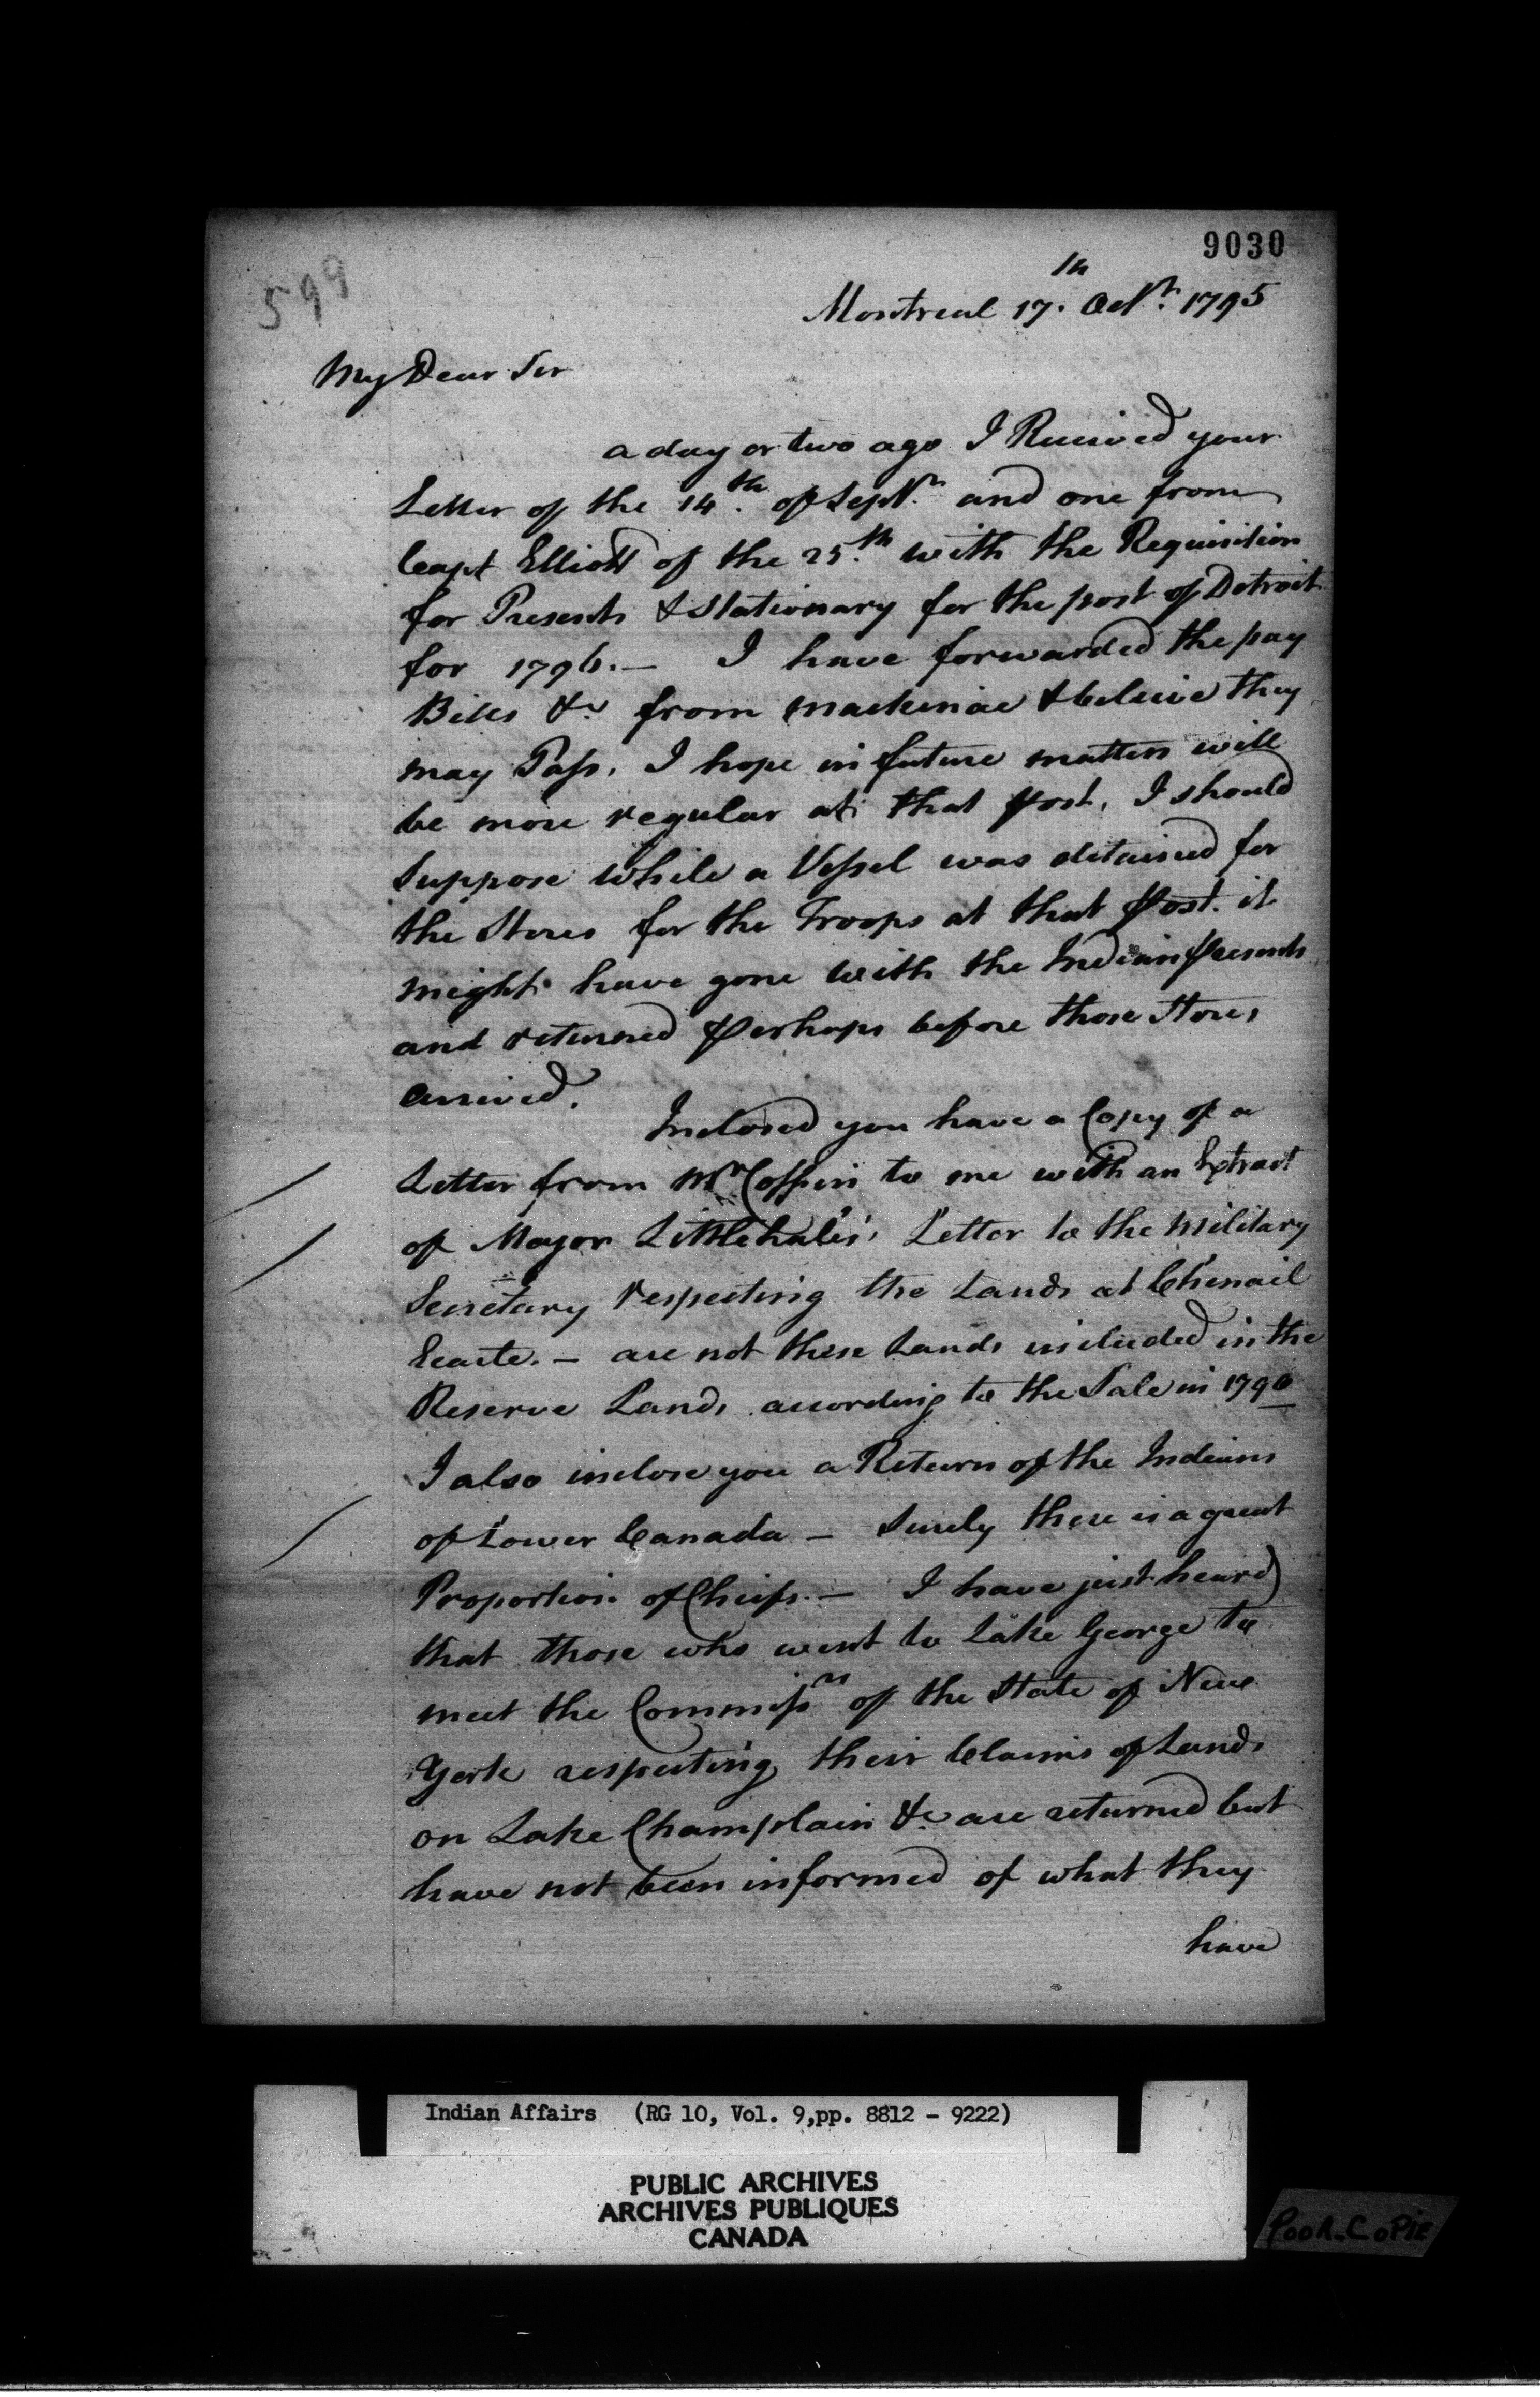 9030
599
Montreal 17th. Octr. 1795
My Dear Sir
a day or two ago I Received your
Letter of the 14th. of Septr. and one from
Capt Elliott of the 25th. with the Requisition
for Presents & Stationary for the post of Detroit
for 1796. — I have forwarded the pay
Bills &c. from Mackinac & beleive they
may Pass. I hope in future matters will
be more regular at that post, I should
suppose while a Vessel was detained for
the Stores for the Troops at that Post. it
might have gone with the Indian presents
and returned perhaps before those Stores
arrived.
Inclosed you have a Copy of a
Letter from Mr Coffin to me with an Extract
of Mayor Littlehales's Letter to the Military
Secretary respecting the Lands at Chenail
Ecarte. — are not these Lands included in the
Reserve Lands according to the Sale in 1790
I also inclose you a Return of the Indians
of Lower Canada — Surely there is a great
Proportion of Cheifs. — I have just heard
that those who went to Lake George to
meet the Commissrs of the State of New
York respecting their Claims of Lands
on Lake Champlain &c. are returned but
have not been informed of what they
have
Indian Affairs (RG 10, Vol. 9,pp. 8812 - 9222)
PUBLIC ARCHIVES
ARCHIVES PUBLIQUES
CANADA
Poor Copie